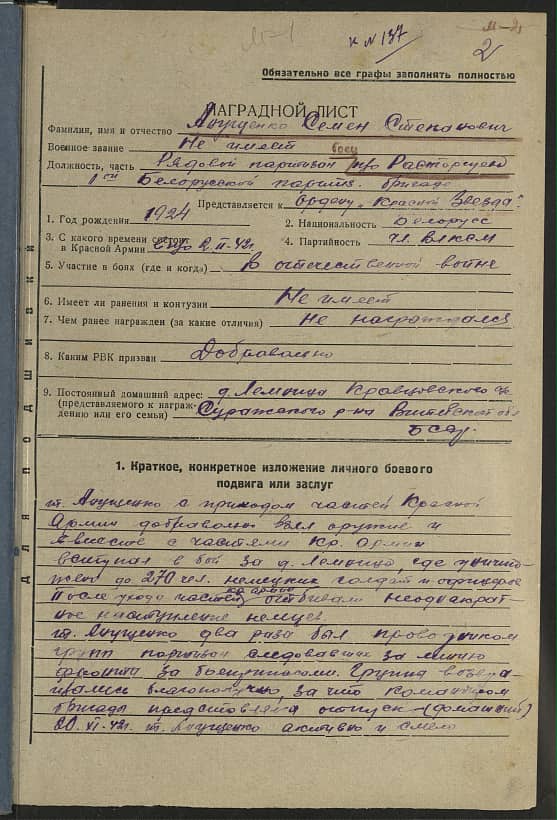 к № 137
2
Обязательно все графы заполнять полностью
НАГРАДНОЙ ЛИСТ
Фамилия, имя и отчество Анущенко Семен Степанович
Военное звание Не имеет
боец
Должность, часть Рядовой партизан
1ой Белорусской партиз. бригады
Представляется к Ордену „Красной Звезда"
1. Год рождения 1924
2. Национальность Белорусс
3. С какого времени состоит
в Красной Армии 2.II-42г.
4. Партийность чл. ВЛКСМ
5. Участие в боях (где и когда) В отечественной войне
6. Имеет ли ранения и контузии Не имеет
7. Чем ранее награжден (за какие отличия) Не награждался
8. Каким РВК призван Добровольно
9. Постоянный домашний адрес: д. Лемница
(представляемого к награж-
дению или его семьи) Суражского р-на Витебской обл
БССР.
Для подшивки
1. Краткое, конкретное изложение личного боевого
подвига или заслуг
т. Анущенко с приходом частей Красной
Армии добровольно взял оружие и
вместе с частями Кр. Армии
вступил в бой за д. Лемница, где уничто-
до 270 чел. немецких солдат и офицеров
Кр. армии
После ухода частей отбивал неоднократ-
ное наступление немцев.
т. Анущенко два раза был проводником
групп партизан следовавших за линию
фронта за боеприпасами. Группа возвра-
благополучно, за что командиром
бригады предоставлен отпуск (домашний)
20.VI-42г. т. Анущенко активно и смело